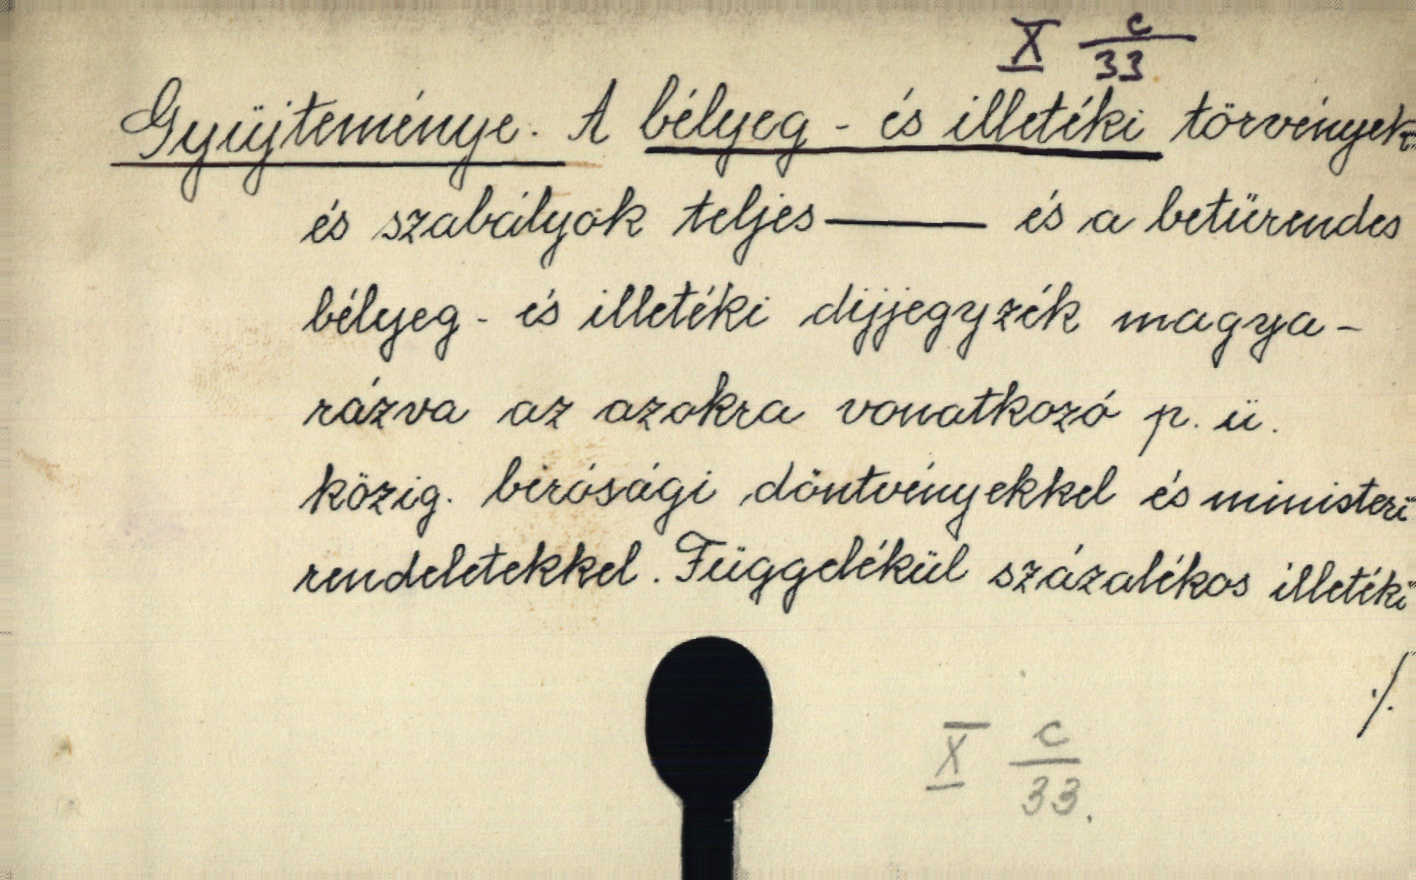 X c/33
Gyüjteménye. A bélyeg - és illetéki törvények
és szabályok teljes —— és a betürendes
bélyeg - és illetéki dijjegyzék magya-
rázva az azokra vonatkozó p. ü.
közig. birósági döntvényekkel és ministeri
rendeletekkel. Függelékül százalékos illetéki
./.
X c/33.